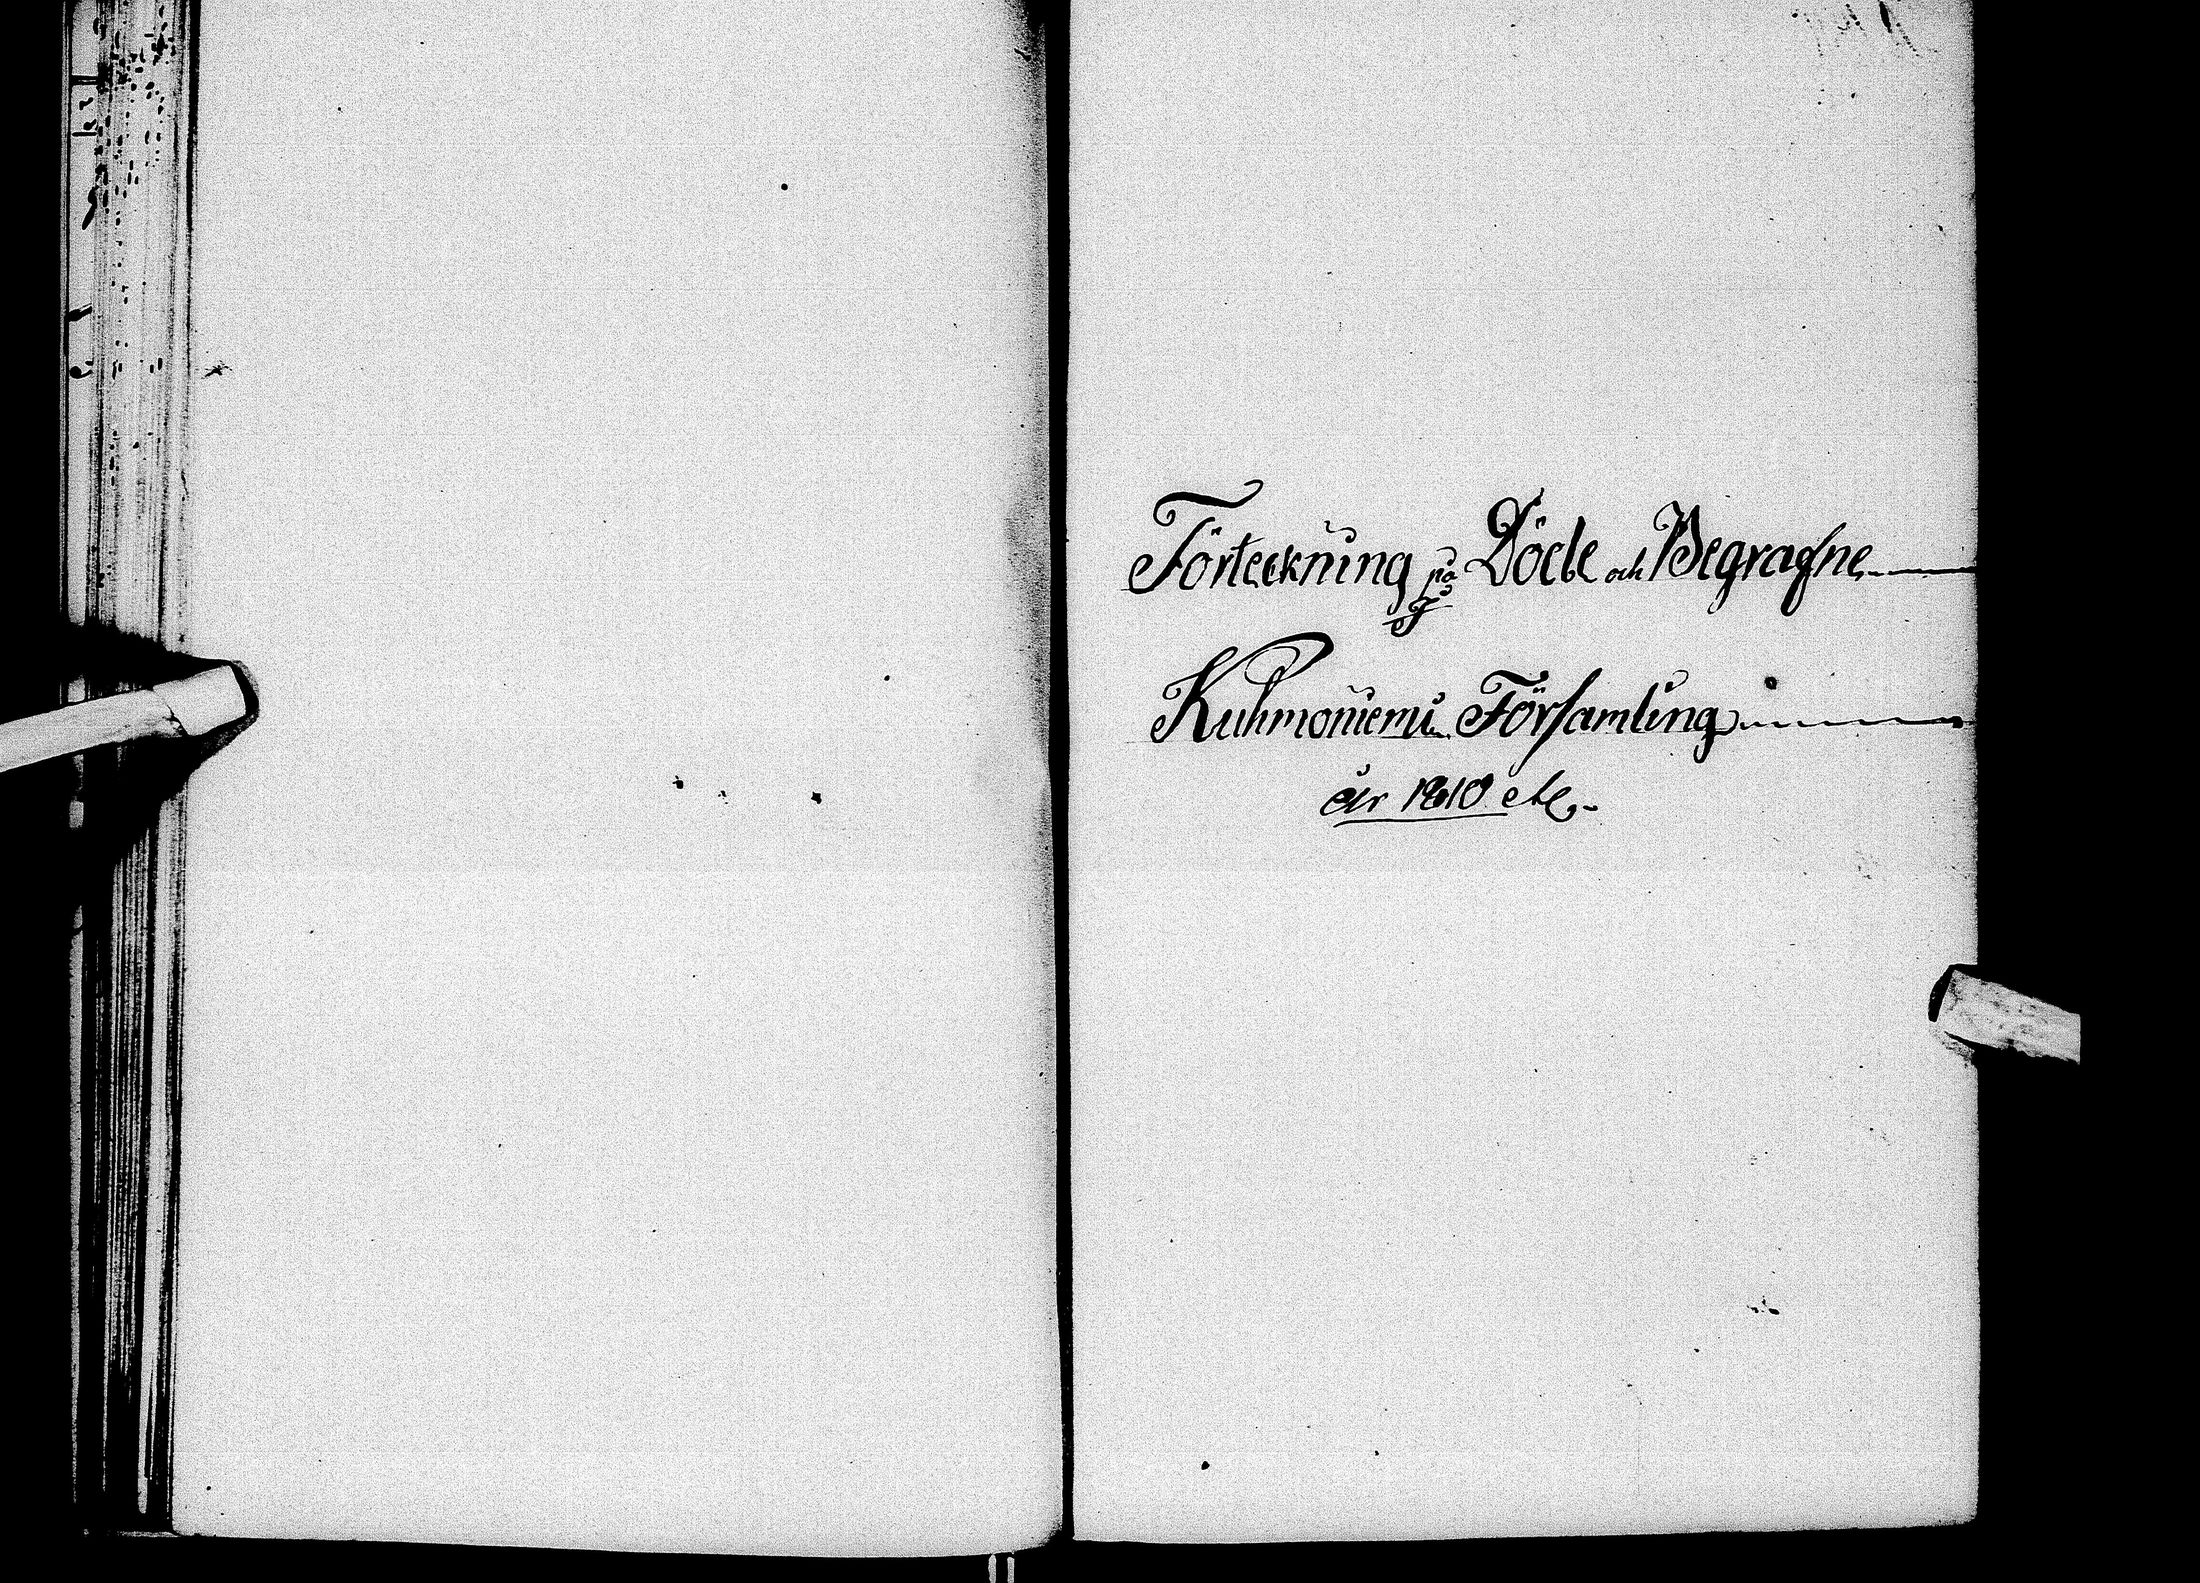 Förteckning på Döde och Begrafne
J
Kuhmoniemi Församling
År 1810 etc.